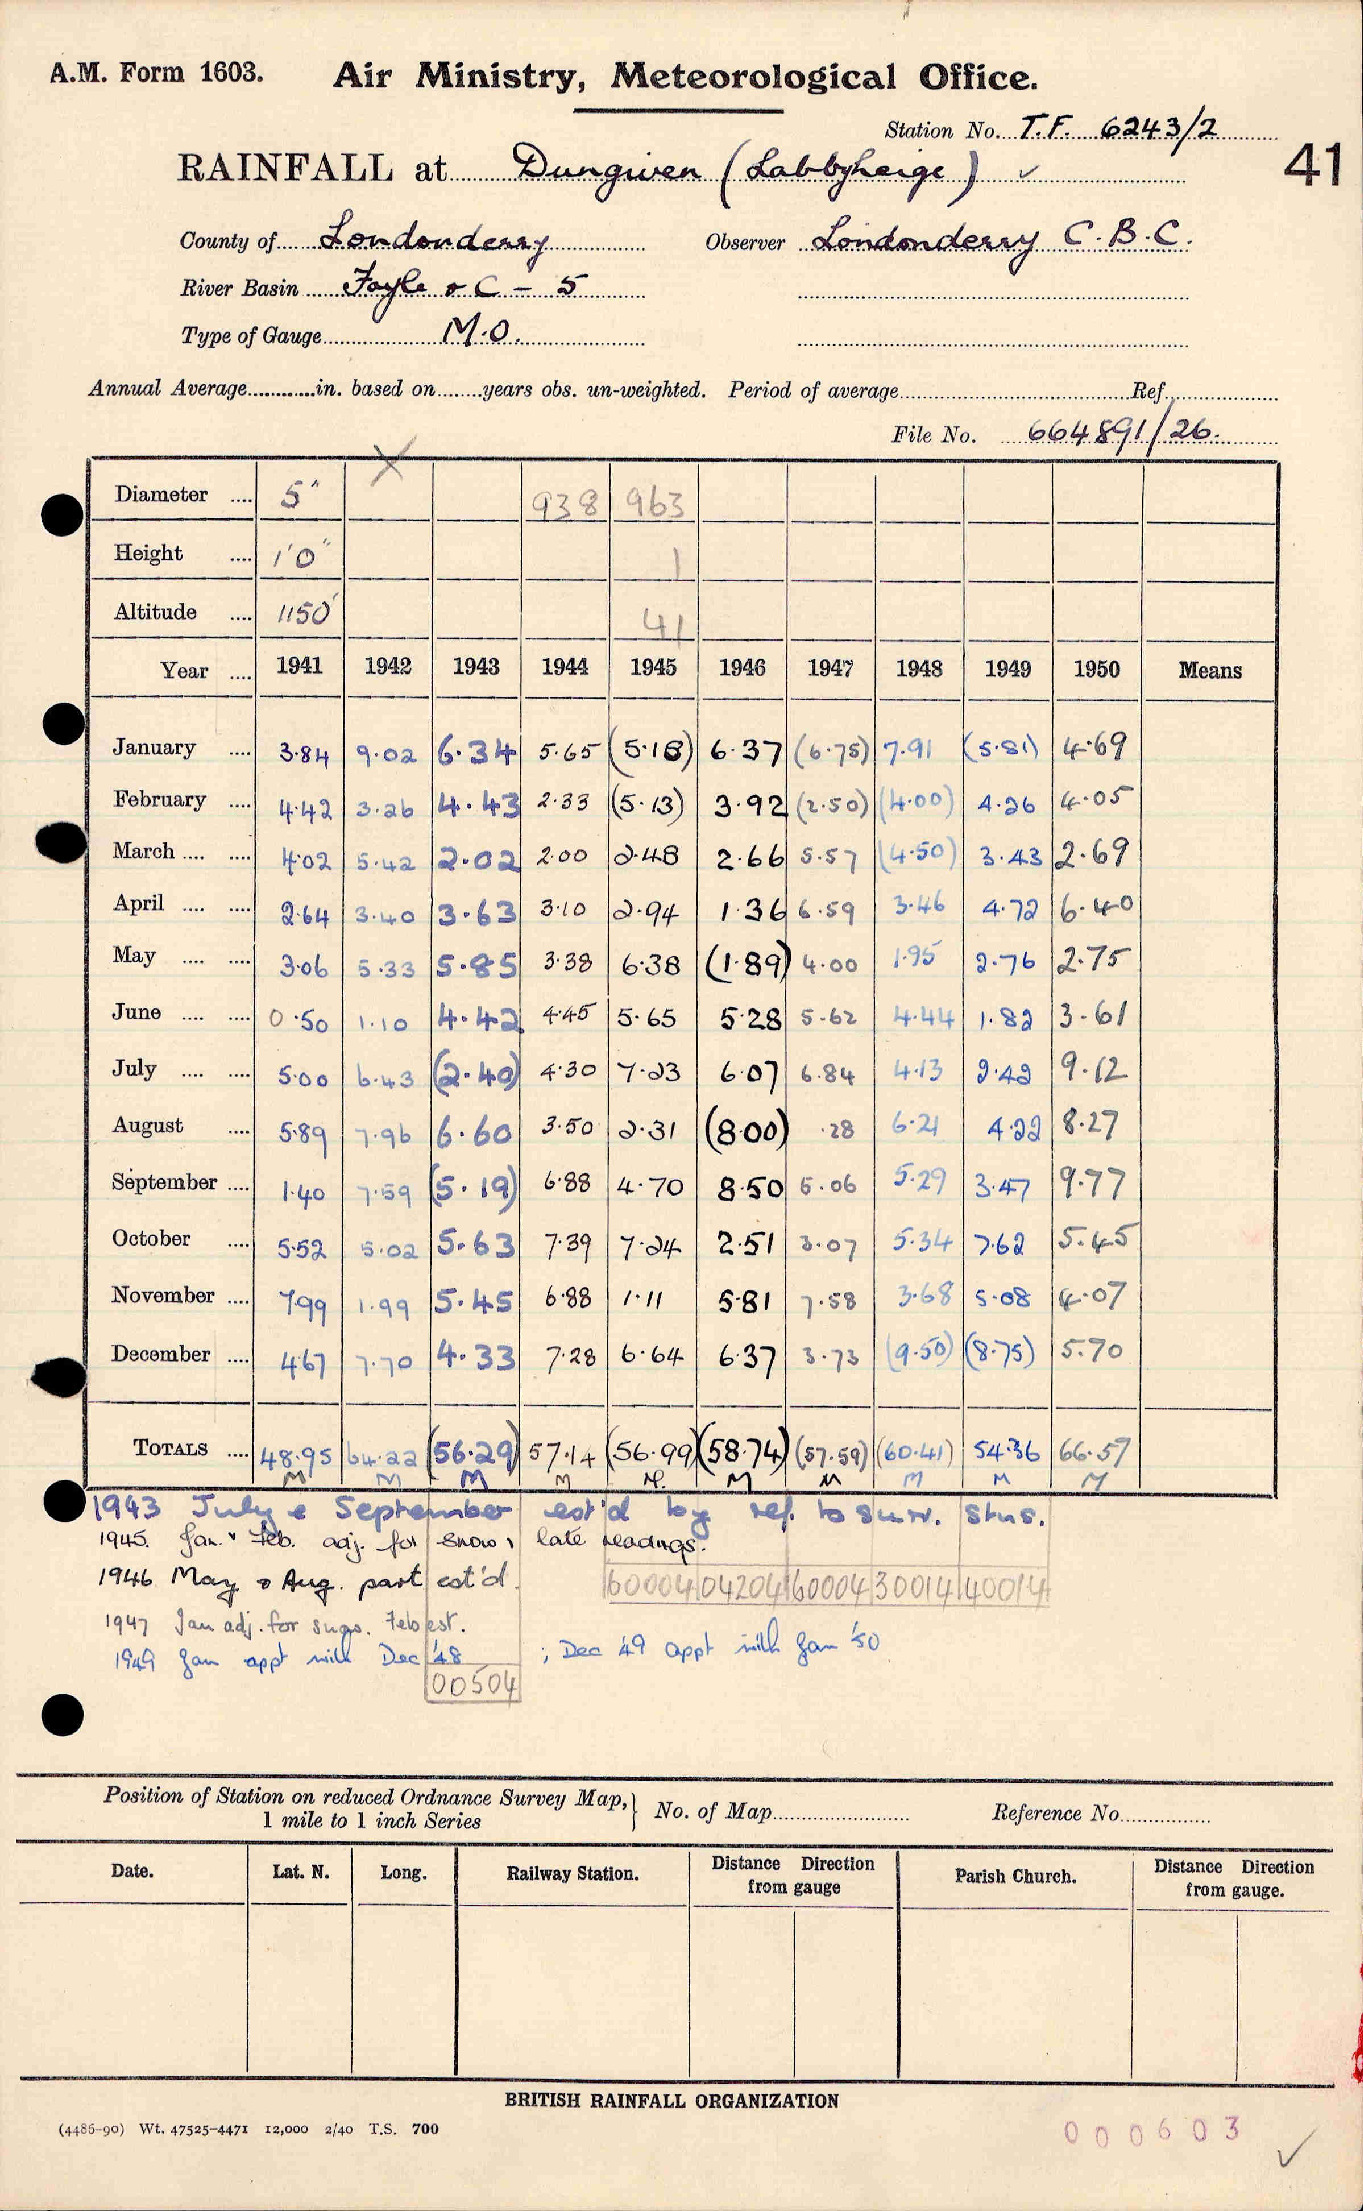 A.M. Form 1603. Air Ministry, Meteorological Office.
Station No. T.F. 6243/2
41
RAINFALL at Dungiven (Labbyheige) ✓
County of Londonderry Observer Londonderry C.B.C.
River Basin Foyle & C - 5
Type of Gauge M.O.
Annual Average............in. based on........years obs. un-weighted. Period of average Ref.
File No. 664891/26.
X
Diameter .... 5" 938 963
Height .... 1'0" 1
Altitude .... 1150' 41
Year .... 1941 1942 1943 1944 1945 1946 1947 1948 1949 1950 Means
January .... 3.84 9.02 6.34 5.65 (5.18) 6.37 (6.75) 7.91 (5.81) 4.69
February .... 4.42 3.26 4.43 2.33 (5.13) 3.92 (2.50) (4.00) 4.26 4.05
March .... .... 4.02 5.42 2.02 2.00 2.48 2.66 5.57 (4.50) 3.43 2.69
April .... .... 2.64 3.40 3.63 3.10 2.94 1.36 6.59 3.46 4.72 6.40
May .... .... 3.06 5.33 5.85 3.38 6.38 (1.89) 4.00 1.95 2.76 2.75
June .... .... 0.50 1.10 4.42 4.45 5.65 5.28 5.62 4.44 1.82 3.61
July .... .... 5.00 6.43 (2.40) 4.30 7.23 6.07 6.84 4.13 2.42 9.12
August .... 5.89 7.96 6.60 3.50 2.31 (8.00) .28 6.21 4.22 8.27
September .... 1.40 7.59 (5.19) 6.88 4.70 8.50 5.06 5.29 3.47 9.77
October .... 5.52 5.02 5.63 7.39 7.24 2.51 3.07 5.34 7.62 5.45
November .... 7.99 1.99 5.45 6.88 1.11 5.81 7.58 3.68 5.08 4.07
December .... 4.67 7.70 4.33 7.28 6.64 6.37 3.73 (9.50) (8.75) 5.70
TOTALS .... 48.95 64.22 (56.29) 57.14 (56.99) (58.74) (57.59) (60.41) 54.36 66.57
M M M M M M M M M M
1943 July & September est'd by ref. to surr. stns.
1945. Jan. & Feb. adj. for snow & late readings.
1946 May & Aug. part est'd. 60004 04204 60004 30014 40014
1947 Jan adj. for sugs. Feb est.
1949 Jan appt with Dec '48 ; Dec '49 appt with Jan '50
00504
Position of Station on reduced Ordnance Survey Map, 1 mile to 1 inch Series } No. of Map Reference No.
Date. Lat. N. Long. Railway Station. Distance Direction from gauge Parish Church. Distance Direction from gauge.
BRITISH RAINFALL ORGANIZATION
(4486-90) Wt. 47525-4471 12,000 2/40 T.S. 700
000603 ✓